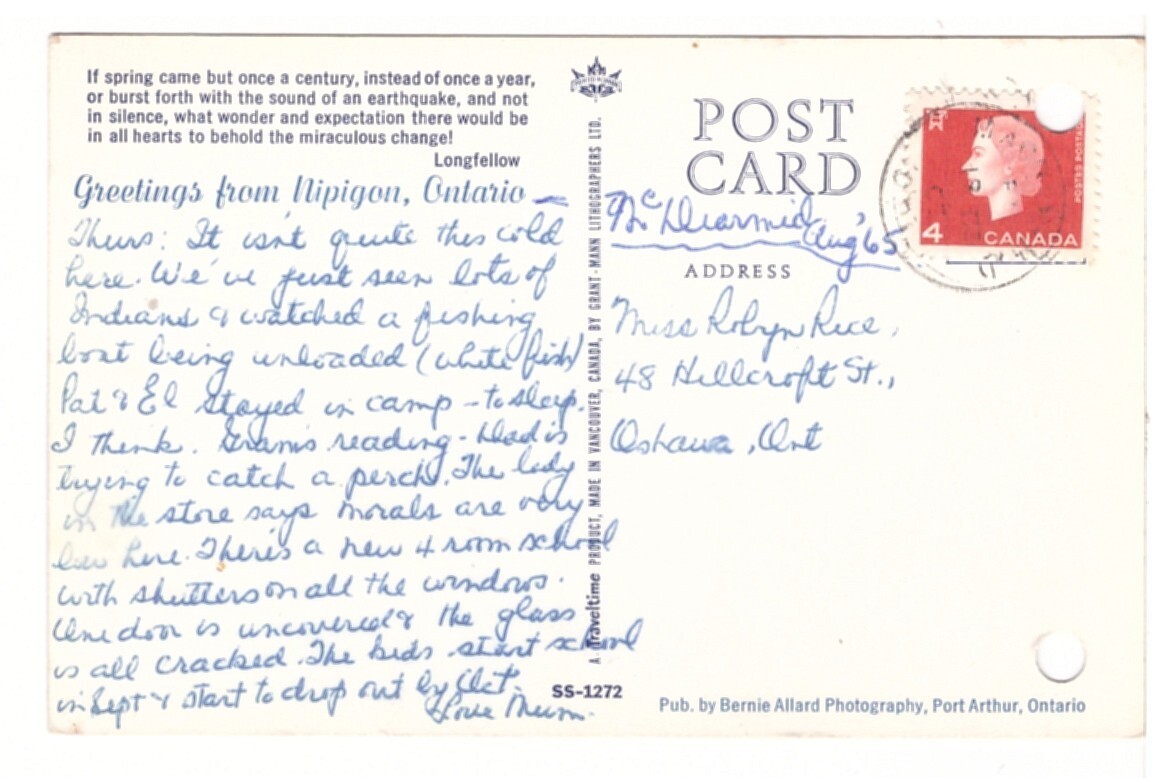 If spring came but once a century, instead of once a year,
or burst forth with the sound of an earthquake, and not
in silence, what wonder and expectation there would be
in all hearts to behold the miraculous change!
Longfellow
Greetings from Nipigon, Ontario —
Thurs: It isn't quite this cold
here. We've just seen lots of
Indians & watched a fishing
boat being unloaded (white fish)
Pat & El stayed in camp - to sleep.
I think. Gram's reading - Dad is
trying to catch a perch. The lady
in the store says morals are very
low here. There's a new 4 room school
with shutters on all the windows.
One door is uncovered & the glass
is all cracked. The kids start school
in Sept & start to drop out by Oct.
Love Mum.
A Traveltime PRODUCT, MADE IN VANCOUVER, CANADA, BY GRANT-MANN LITHOGRAPHERS LTD.
SS-1272
POST
CARD
McDiarmid,
Aug '65
ADDRESS
Miss Robyn Rice,
48 Hillcroft St.,
Oshawa, Ont
POSTES POSTAGE
4 CANADA
Pub. by Bernie Allard Photography, Port Arthur, Ontario